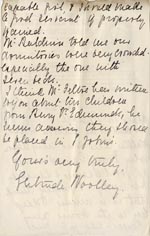 capable girl, & should make
a good servant if properly
trained.
Mr Baldwin told me our
dormitories were very crowded -
especially the one with
seven beds.
I think Mr Felton has written
to you about two children
from Bury St Edmunds, he
seems anxious they should
be placed in S. John's.
Yours very truly,
Gertrude Woolley.